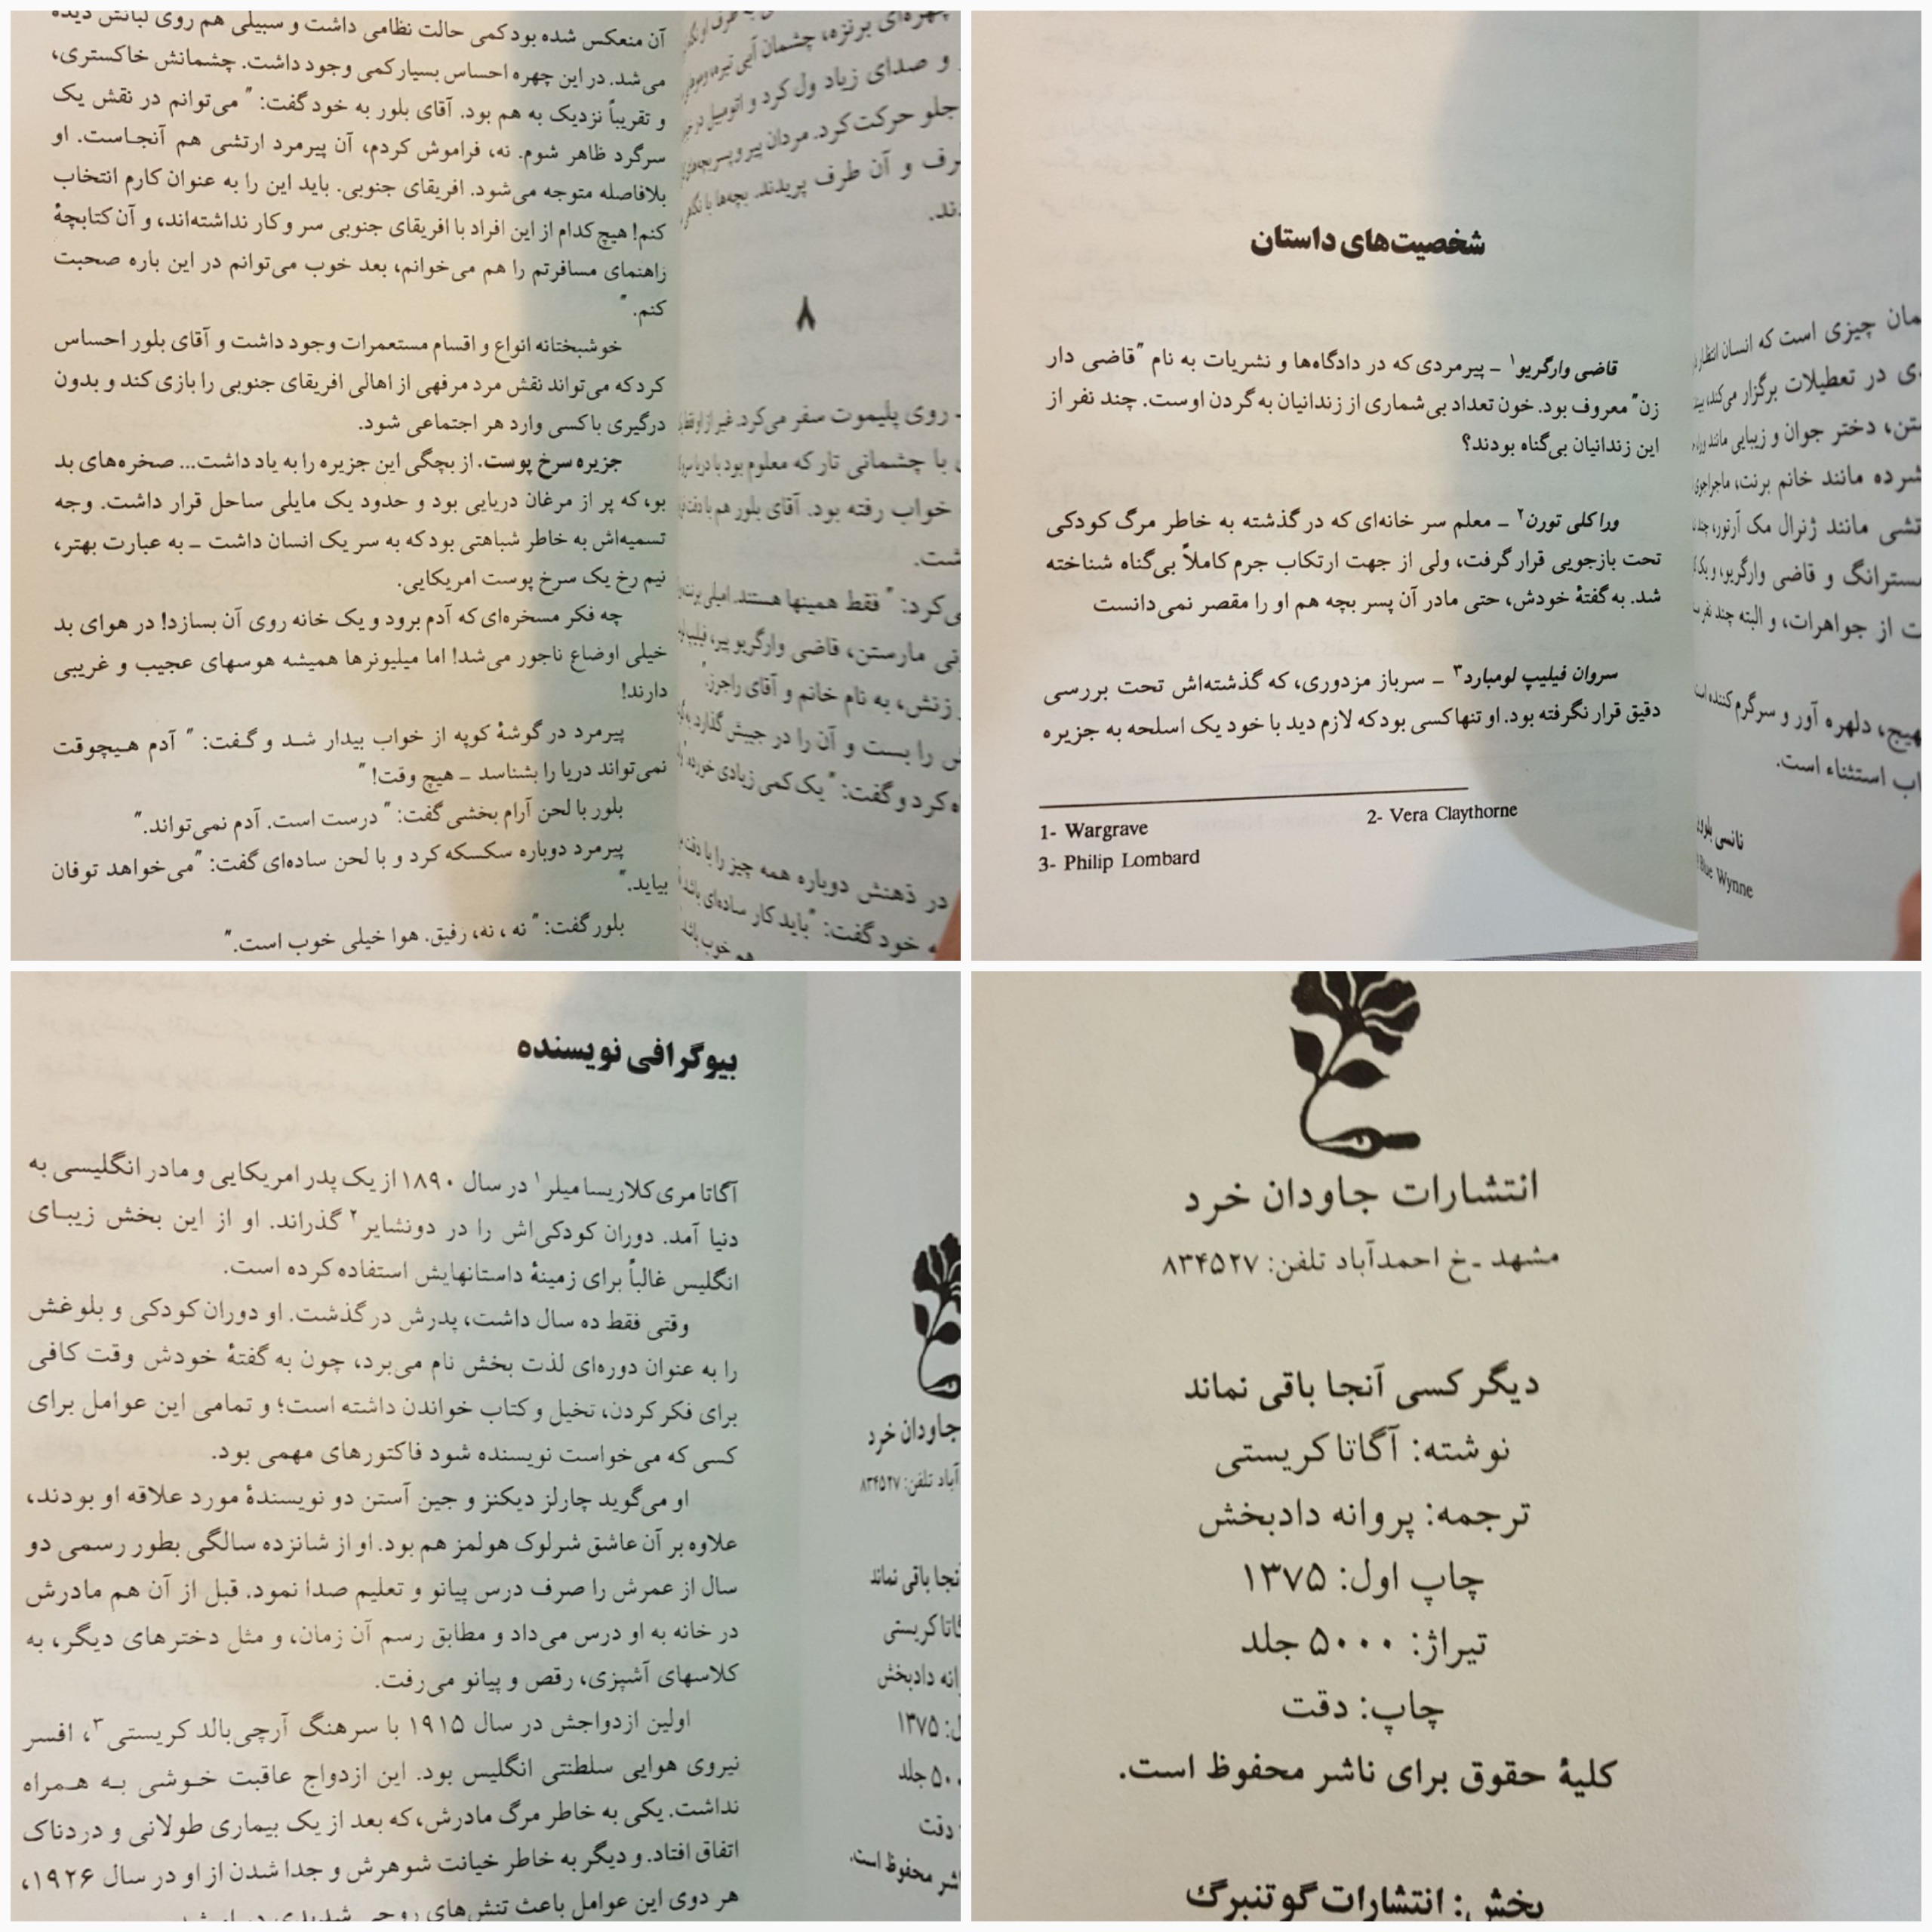 آن منعکس شده بود کمی حالت نظامی داشت و سبیلی هم روی لبانش دیده
می‌شد. در این چهره احساس بسیار کمی وجود داشت. چشمانش خاکستری،
و تقریباً نزدیک به هم بود. آقای بلور به خود گفت: "می‌توانم در نقش یک
سرگرد ظاهر شوم. نه، فراموش کردم، آن پیرمرد ارتشی هم آنجاست. او
بلافاصله متوجه می‌شود. افریقای جنوبی. باید این را به عنوان کارم انتخاب
کنم! هیچ کدام از این افراد با افریقای جنوبی سر و کار نداشته‌اند، و آن کتابچهٔ
راهنمای مسافرتم را هم می‌خوانم، بعد خوب می‌توانم در این باره صحبت
کنم."
خوشبختانه انواع و اقسام مستعمرات وجود داشت و آقای بلور احساس
کرد که می‌تواند نقش مرد مرفهی از اهالی افریقای جنوبی را بازی کند و بدون
درگیری با کسی وارد هر اجتماعی شود.
جزیره سرخ پوست. از بچگی این جزیره را به یاد داشت... صخره‌های بد
بو، که پر از مرغان دریایی بود و حدود یک مایلی ساحل قرار داشت. وجه
تسمیه‌اش به خاطر شباهتی بود که به سر یک انسان داشت ـ به عبارت بهتر،
نیم رخ یک سرخ پوست امریکایی.
چه فکر مسخره‌ای که آدم برود و یک خانه روی آن بسازد! در هوای بد
خیلی اوضاع ناجور می‌شد! اما میلیونرها همیشه هوسهای عجیب و غریبی
دارند!
پیرمرد در گوشهٔ کوپه از خواب بیدار شد و گفت: "آدم هیچوقت
نمی‌تواند دریا را بشناسد ـ هیچ وقت!"
بلور با لحن آرام بخشی گفت: "درست است. آدم نمی‌تواند."
پیرمرد دوباره سکسکه کرد و با لحن ساده‌ای گفت: "می‌خواهد توفان
بیاید."
بلور گفت: "نه، نه، رفیق. هوا خیلی خوب است."
چهره‌ای برنزه، چشمان آبی تیره،
و صدای زیاد ول کرد و اتومبیل در
جلو حرکت کرد. مردان پیر و پسر بچه‌های
و آن طرف پریدند. بچه‌ها با
۸
روی پلیموت سفر می‌کرد. غیر از او فقط
با چشمانی تار که معلوم بود با دریا
خواب رفته بود. آقای بلور هم با دقت
می‌کرد: "فقط همینها هستند. امیلی برنت
مارستن، قاضی وارگریو پیر، فیلیپ
زنش، به نام خانم و آقای راجرز."
را بست و آن را در جیبش گذارد.
کرد و گفت: "یک کمی زیادی خورده
در ذهنش دوباره همه چیز را با دقت
خود گفت: "باید کار ساده‌ای باشد
هم خوب باشد
شخصیت‌های داستان
قاضی وارگریو۱ ـ پیرمردی که در دادگاه‌ها و نشریات به نام "قاضی دار
زن" معروف بود. خون تعداد بی‌شماری از زندانیان به گردن اوست. چند نفر از
این زندانیان بی‌گناه بودند؟
ورا کلی تورن۲ ـ معلم سر خانه‌ای که در گذشته به خاطر مرگ کودکی
تحت بازجویی قرار گرفت، ولی از جهت ارتکاب جرم کاملاً بی‌گناه شناخته
شد. به گفتهٔ خودش، حتی مادر آن پسر بچه هم او را مقصر نمی‌دانست
سروان فیلیپ لومبارد۳ ـ سرباز مزدوری، که گذشته‌اش تحت بررسی
دقیق قرار نگرفته بود. او تنها کسی بود که لازم دید با خود یک اسلحه به جزیره
1- Wargrave 2- Vera Claythorne
3- Philip Lombard
چیزی است که انسان انتظار
در تعطیلات برگزار می‌کند،
دختر جوان و زیبایی مانند
مانند خانم برنت، ماجراجوی
مانند ژنرال مک آرتور، چند
و قاضی وارگریو، و یک
از جواهرات، و البته چند نفر
دلهره آور و سرگرم کننده است
استثناء است.
نانسی بلو
Blue Wynne
بیوگرافی نویسنده
آگاتا مری کلاریسا میلر۱ در سال ۱۸۹۰ از یک پدر امریکایی و مادر انگلیسی به
دنیا آمد. دوران کودکی‌اش را در دونشایر۲ گذراند. او از این بخش زیبای
انگلیس غالباً برای زمینهٔ داستانهایش استفاده کرده است.
وقتی فقط ده سال داشت، پدرش درگذشت. او دوران کودکی و بلوغش
را به عنوان دوره‌ای لذت بخش نام می‌برد، چون به گفتهٔ خودش وقت کافی
برای فکر کردن، تخیل و کتاب خواندن داشته است؛ و تمامی این عوامل برای
کسی که می‌خواست نویسنده شود فاکتورهای مهمی بود.
او می‌گوید چارلز دیکنز و جین آستن دو نویسندهٔ مورد علاقه او بودند،
علاوه بر آن عاشق شرلوک هولمز هم بود. او از شانزده سالگی بطور رسمی دو
سال از عمرش را صرف درس پیانو و تعلیم صدا نمود. قبل از آن هم مادرش
در خانه به او درس می‌داد و مطابق رسم آن زمان، و مثل دخترهای دیگر، به
کلاسهای آشپزی، رقص و پیانو می‌رفت.
اولین ازدواجش در سال ۱۹۱۵ با سرهنگ آرچی‌بالد کریستی۳، افسر
نیروی هوایی سلطنتی انگلیس بود. این ازدواج عاقبت خوشی به همراه
نداشت. یکی به خاطر مرگ مادرش، که بعد از یک بیماری طولانی و دردناک
اتفاق افتاد. و دیگر به خاطر خیانت شوهرش و جدا شدن از او در سال ۱۹۲۶،
هر دوی این عوامل باعث تنش‌های روحی شدیدی
جاودان خرد
آباد تلفن: ۸۳۴۵۲۷
باقی نماند
کریستی
دادبخش
۱۳۷۵
جلد
دقت
محفوظ است.
انتشارات جاودان خرد
مشهد ـ خ احمدآباد تلفن: ۸۳۴۵۲۷
دیگر کسی آنجا باقی نماند
نوشته: آگاتا کریستی
ترجمه: پروانه دادبخش
چاپ اول: ۱۳۷۵
تیراژ: ۵۰۰۰ جلد
چاپ: دقت
کلیهٔ حقوق برای ناشر محفوظ است.
پخش: انتشارات گوتنبرگ